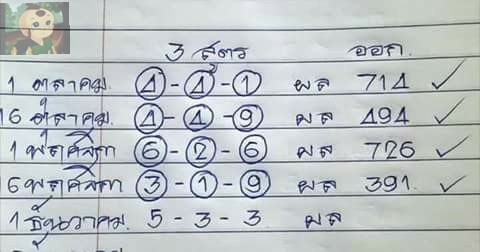 3 สูตร ออก.
1 ตุลาคม. 4 - 4 - 1 ผล 714 ✓
16 ตุลาคม. 4 - 4 - 9 ผล 494 ✓
1 พฤศจิกา 6 - 2 - 6 ผล 726 ✓
6 พฤศจิกา 3 - 1 - 9 ผล 391. ✓
1 ธันวาคม. 5 - 3 - 3 ผล